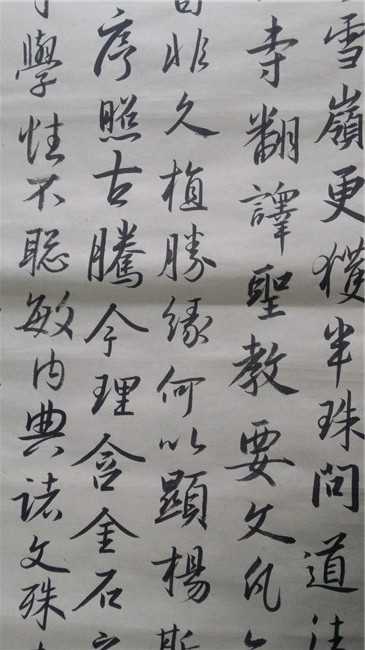 雪嶺更獲半珠問道法
寺翻譯聖教要文凡
非久植勝緣何以顯揚斯
序照古騰今理含金石
學性不聰敏內典諸文殊